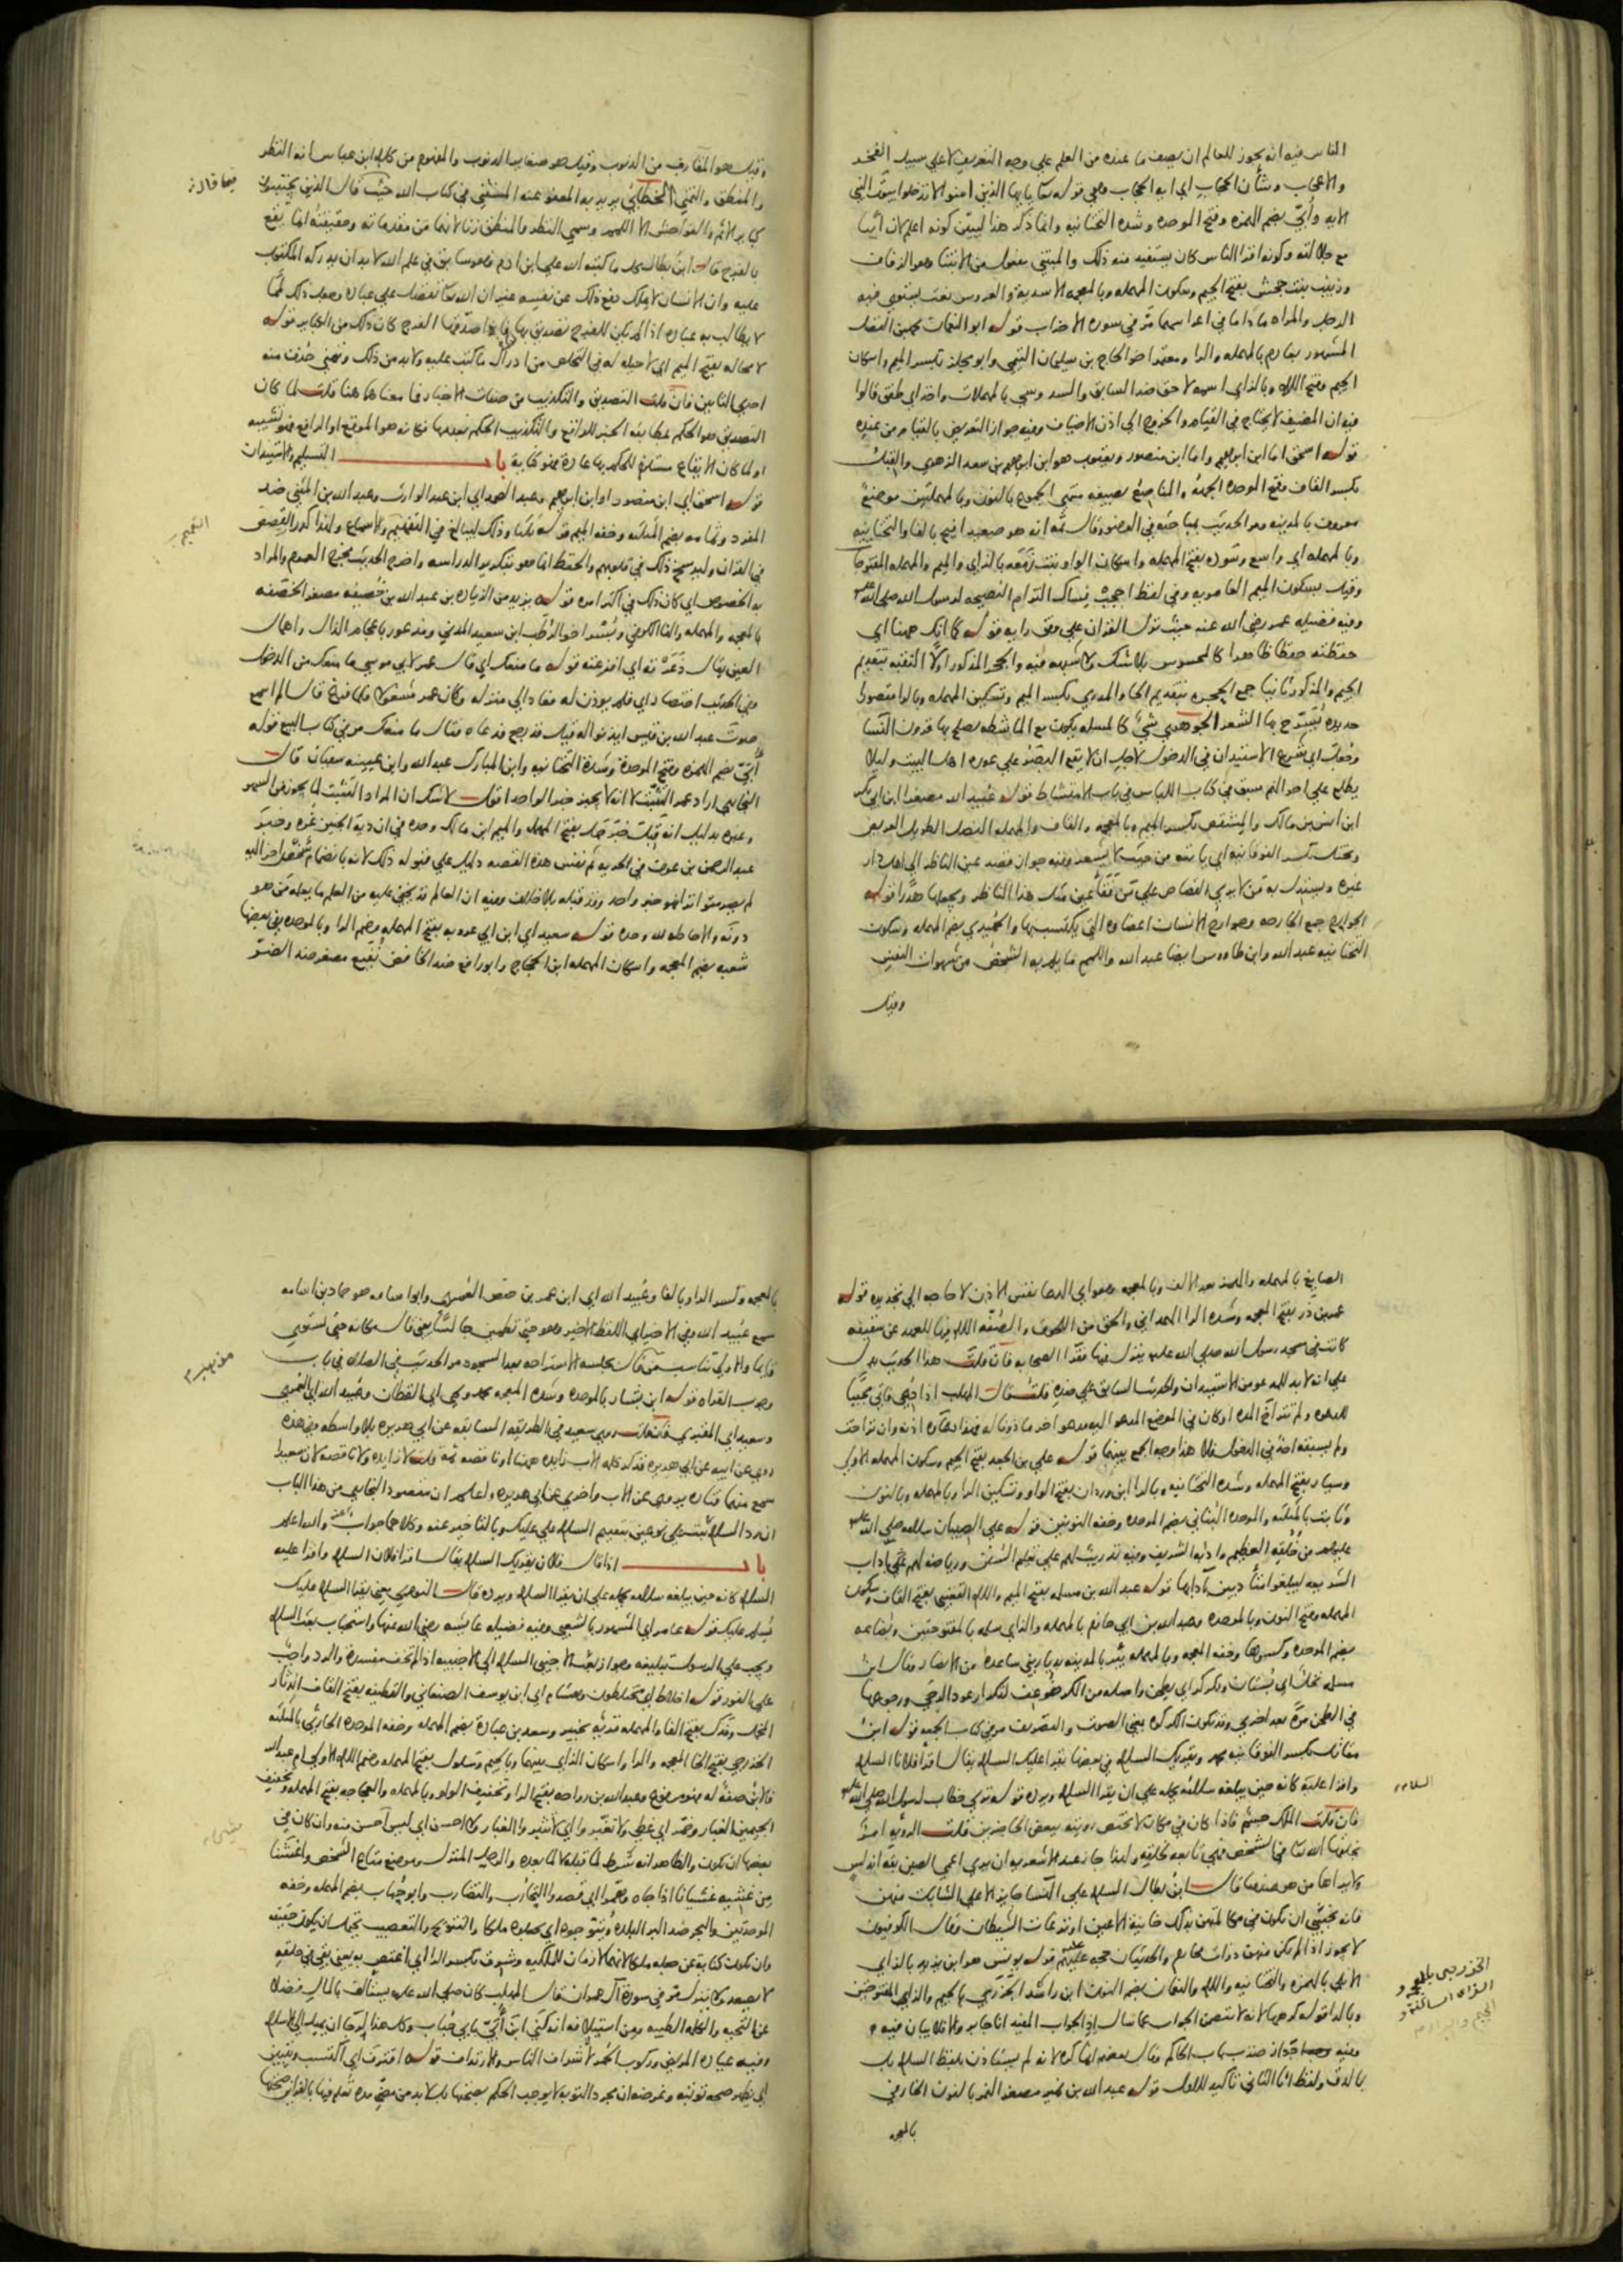 الناس فيه انه يجوز للعالم ان يصف ما عنده من العلم علي وجه التعريف لا علي سبيل الفخر
والاعجاب وشأن الحجاب اي ايه الحجاب وهي قوله تعا يايها الذين امنوا لا تدخلوا بيوت النبي
الايه وأُبَيّ بضم الهمزه وفتح الموحده وشده التحتانيه وانما ذكر هذا ليبين كونه اعلم لان أُبَيا
مع جلالته وكونه اقرا الناس كان يستفيد منه ذلك والمبتني مفعول من الابتنا وهو الزفاف
وزينب بنت جحش بفتح الجيم وسكون المهمله وبالمعجمه الاسديه والعروس نعت يستوي فيه
الرجل والمراه ما داما في اعراسهما مرّ في سوره الاحزاب قوله ابو النعمان محمد بن الفضل
المشهور بعارم بالمهمله والرا ومعتمر اخو الحاج بن سليمان التيمي وابو مجلز بكسر الميم واسكان
الجيم وفتح اللام وبالزاي اسمه لاحق ضد السابق والسند وسي بالمهملات واخذ اي طفق قالوا
فيه ان المضيف لا يحتاج في القيام والخروج الي اذن الاضياف وفيه جواز التعريض بالقيام من عنده
قوله اسحق اما ابن ابراهيم واما ابن منصور ويعقوب هو ابن ابراهيم بن سعد الزهري والقبل
بكسر القاف وفتح الموحده الجهه والمناصع بصيغه منتهي الجموع بالنون وبالمهملتين موضع
معروف بالمدينه ومر الحديث بمباحثه في الوضوء وقال ثمه انه هو صعيد افيح بالفا والتحتانيه
وبالمهمله اي واسع وسَوده بفتح المهمله واسكان الواو بنت زَمَعَه بالزاي والميم والمهمله المفتوحا
وقيل بسكون الميم العامريه وفي لفظ احجب نساك التزام النصيحه لرسول الله صلي الله عليه
وفيه فضيله عمر رضي الله عنه حيث نزل القران علي وفق رايه قوله كما انك ههنا اي
حفظته حفظا ظاهرا كالمحسوس بلا شك ولا شبهه فيه والجحر المذكور اولًا الثقبه بتقديم
الجيم والمذكور ثانيا جمع الحجره بتقديم الحا والمدري بكسر الميم وتسكين المهمله وبالرا مقصورا
حديده يُسَرّح بها الشعر الجوهري شيءٌ كالمسله يكون مع الماشطه يصلح بها قرون النسا
وجُعِل اي شُرع الاستيدان في الدخول لاجل ان لا يقع البصر علي عوره اهل البيت وليلا
يطلع علي احوالهم سبق في كتاب اللباس في باب الامتشاط قوله عُبيد الله مصغرا ابن ابي بكر
ابن انس بن مالك والمِشقص بكسر الميم وبالمعجمه والقاف والمهمله النصل الطويل العريض
ويختل بكسر الفوقانيه اي ياتيه من حيث لا يشعر وفيه جواز قصد عين الناظر الي اهل دار
غيره ويستدل به مَن لا يري القصاص علي مَن فَقَأ عين مثل هذا الناظر ويجعلها هَدَرا قوله
الجوارح جمع الجارحه وجوارح الانسان اعضاوه التي يكتسب بها والحُمَيدي بضم المهمله وسكون
التحتانيه عبد الله وابن طاووس ايضا عبد الله واللمم ما يلم به الشخصُ من شهوات النفس
وقيل
وقيل هو المقارف من الذنوب وقيل هو صغاير الذنوب والمفهوم من كلام ابن عباس انه النظر
والمنطق والتمني الخطابي يريد به المعفو عنه المستثني في كتاب الله حيث قال الذين يجتنبون
كباير الاثم والفواحش الا اللمم وسمي النظر والمنطق زنا لانهما من مقدماته وحقيقته انما يقع
بالفرج قال ابن بطال كل ما كتبه الله علي ابن ادم وهو سابق في علم الله لا بد ان يدركه المكتوب
عليه وان الانسان لا يملك دفع ذلك عن نفسه غير ان الله تعا تفضل علي عباده وجعل ذلك لممًا
لا يطالب به عباده اذا لم يكن للفرج تصديق بها فاذا صدّقها الفرج كان ذلك من الكباير قوله
لا محاله بفتح الميم اي لا حيله له في التخلص من ادراك ما كتب عليه ولا بد من ذلك وتمني حُذفت منه
احدي التائين فان قلت التصديق والتكذيب من صفات الاخبار فما معناهما هنا قلت لما كان
التصديق هو الحكم بمطابقه الخبر للواقع والتكذيب الحكم بعدمها فكانه هو الموقع او الرافع فهو تشبيه
او لما كان الايقاع مستلزما للحكم بها عادة فهو كناية باب التسليم والاستيدان
قوله اسحق اي ابن منصور او ابن ابراهيم وعبد الصمد اي ابن عبد الوارث وعبد الله بن المثني ضد
المفرد وثمامه بضم المثلثه وخفه الميم قوله ثلثا وذلك ليبالغ في التفهيم والاسماع ولهذا كرر القِصَص
في القران وليرسخ ذلك في قلوبهم والحفظ انما هو بتكرير الدراسه واخرج الحديث مخرج العموم والمراد
به الخصوص اي كان ذلك في اكثر امره قوله يزيد من الزياده بن عبد الله بن خُصيفه مصغر الخصفه
بالمعجمه والمهمله والفا الكوفي وبُسْر اخو الرطب ابن سعيد المدني ومذعور باعجام الذال واهمال
العين يقال ذَعَرْته اي افزعته قوله ما منعك اي قال عمر لابي موسي ما منعك من الدخول
وفي الحديث اختصار اي فلم يوذن له فعاد الي منزله وكان عمر مشغولا فلما فرغ قال الم اسمع
صوتَ عبد الله بن قيس ايذنوا له فقيل قد رجع فدعاه فقال ما منعك مر في كتاب البيع قوله
أُبَيّ بضم الهمزه وفتح الموحدة وشدة التحتانيه وابن المبارك عبد الله وابن عيينه سفيان قال
البخاري اراد عمر التثبت لا انه لا يجيز خبر الواحد اقول لا شك ان المراد التثبت لما يجوز من السهو
وغيره بدليل انه قَبِلَ خبَرَ حَمَل بفتح المهمله والميم ابن مالك وحده في ان ديَةَ الجنين غره وخبرَ
عبد الرحمن بن عوف في الجزيه ثم نفس هذه القصه دليل علي قبوله ذلك لانه بانضمام شخص اخر اليه
لم يصر متواترا فهو خبر واحد وقد قبله بلا خلاف وفيه ان العالم قد يخفي عليه من العلم ما يعلمه مَن هو
دونَه والاحاطه لله وحده قوله سعيد اي ابن ابي عروبه بفتح المهمله وضم الرا وبالموحده وفي بعضها
شعبه بضم المعجمه واسكان المهمله ابن الحجاج وابو رافع ضد الخافض نُفَيع مصغر ضد الضرّ
فيها قاله
التفهيم
الصايغ بالمهمله والهمز بعد الالف وبالمعجمه وهو اي الدعا نفس الاذن لا حاجه الي تجديده قوله
عمر بن ذر بفتح المعجمه وشده الرا الهمداني والحق من اللحوق والصُفّه اللام فيها للعهد عن سقيفه
كانت في مسجد رسول الله صلي الله عليه ينزل فيها فقرا الصحابه فان قلت هذا الحديث يدل
علي انه لا بد للمدعو من الاستيدان والحديث السابق علي ضده قلت قال المهلب اذا دُعي فاتي مجيبًا
للدعوه ولم تتراخ المده او كان في الموضع المدعو اليه مدعو اخر ماذونا له فهذا دعاوه اذنه وان تراخت
ولم يسبقه احد في الدخول فلا هذا وجه الجمع بينهما قوله علي بن الجعد بفتح الجيم وسكون المهمله الاولي
وسيار بفتح المهمله وشده التحتانيه وبالرا ابن وردان بفتح الواو وتسكين الرا وبالمهمله وبالنون
وثابت بالمثلثه والموحده البُناني بضم الموحده وخفه النونين قوله علي الصبيان سلامه صلي الله عليه
عليهم من خُلقِه العظيم وادبه الشريف وفيه تدريب لهم علي تعليم السُنن ورياضه لهم علي آداب
الشريعه ليبلغوا متأدبين بآدابها قوله عبد الله بن مسلمه بفتح الميم واللام القعنبي بفتح القاف وسكون
المهمله وفتح النون وبالموحده وعبد الله بن ابي حازم بالمهمله والزاي سلمه بالمفتوحتين وبُضاعه
بضم الموحده وكسرها وخفه المعجمه وبالمهمله بئر بالمدينه بديار بني ساعدة من الانصار وقال ابن
مسلمه نخل اي بُستان وتكركر اي يطحن واصله من الكر ضُوعِف لتكرار عود الرحي ورجوعها
في الطحن مرّة بعد اخري وقد تكون الكركره بمعني الصوت والتصريف مر في كتاب الجمعه قوله ابن
مقاتل بكسر الفوقانيه محمد ويقريك السلام في بعضها يقرا عليك السلام يقال اقرأ فلانا السلام
واقرا عليه كانه حين يبلغه سلامَه يحمله علي ان يقرا السلام ويرده قوله تري خطاب لرسول الله صلي الله عليه
فان قلت الملك جسم فاذا كان في مكان لا تختص رويته ببعض الحاضرين قلت الرويه امرٌ
يخلقها الله تعا في الشخص فهي تابعه لخلقه ولهذا جاز عند الاشعريه ان يري اعمي الصين بقه اندلس
ولا يراها من هو عندها قال ابن بطال السلام علي النسا جايز الا علي الشابات منهن
فانه يخشي ان يكون في مكالمتهن بذلك خاينة الاعين او نزغات الشيطان وقال الكوفيون
لا يجوز اذا لم يكن منهن ذوات محارم والحديثان حجه عليهم قوله يونس هو ابن يزيد بالزاي
الايلي بالهمزه والتحتانيه واللام والنعمان بضم النون ابن راشد الجَزَري بالجيم والزاي المفتوحتين
وبالرا قوله كرهها لانه لا يتضمن الجواب عما سال اذ الجواب المفيد انا جابر والا فلا بيان فيه
وفيه جواز ضرب باب الحاكم وقال بعضهم انما كره لانه لم يستاذن بلفظ السلام بل
بالدق ولفظ انا الثاني تاكيد للاول قوله عبد الله بن نمير مصغر النمر بالنون الخارفي
بالمعجمه
السلام
الخزرجي بالمعجمه و
الزاي الساكنة و
الجيم وبالرا
بالمعجمه وكسر الراو بالفا وعُبيد الله اي ابن عمر بن حفص العُمري وابو اسامه هو حماد بن اسامه
سمع عُبيد الله وفي الاخير اي اللفظ الاخير وهو حتي تطمين جالسًا يعني قال مكانه حتي تستوي
قايما والاولي تناسب من قال بجلسه الاستراحه بعد السجود مر الحديث في الصلاه في باب
وجوب القراه قوله ابن بشار بالموحده وشده المعجمه محمد ويحي اي القطان وعُبيد الله اي العُمري
وسعيد اي المقبري فان قلت روي سعيد في الطريقه السابقه عن ابي هريره بلا واسطه وفي هذه
روي عن ابيه عن ابي هريره فذكر كلمه الاب زايده ههنا او ناقصه ثمة قلت لا زايده ولا ناقصه لان سعيدا
سمع منهما فتاره يروي عن الاب واخري عن ابي هريره واعلم ان مقصود البخاري من هذا الباب
ان رد السلام ثبت علي نوعين بتقديم السلام علي عليك وبالتاخير عنه وكلاهما جواب والله اعلم
باب اذا قال فلان يقريك السلام يقال اقرا فلان السلام واقرا عليه
السلام كانه حين يبلغه سلامه يحمله علي ان يقرا السلام ويرده قال النووي يعني يقرا السلام عليك
يُسلم عليك قوله عامر اي المشهور بالشعبي وفيه فضيله عايشه رضي الله عنها واستحباب بعث السلام
ويجب علي الرسول تبليغه وجواز بعث الاجنبي السلام الي الاجنبيه اذا لم تخف مفسدة والرد واجبٌ
علي الفور قوله اخلاط اي مختلطون وهشام اي ابن يوسف الصنعاني والقطيفه بفتح القاف الدثار
المخمل وفَدك بفتح الفا والمهمله قريه بخيبر وسعد بن عبادة بضم المهمله وخفه الموحده الحارثي بالمثلثه
الخزرجي بفتح الخا المعجمه والرا واسكان الزاي بينهما وبالجيم وسَلول بفتح المهمله وضم اللام الاولي ام عبد الله
فالابن صفة له فهو مرفوع وعبد الله بن رواحه بفتح الرا وتخفيف الواو وبالمهمله والعجاجه بفتح المهمله وتخفيف
الجيمين الغبار وخمّر اي غطي ولا تغبّروا اي لا تثيروا الغبار ولا احسن اي ليس أحسن منه وان كان في
بعضها ان يكون والظاهر انه شرط لما قبله لا لما بعده والرحل المنزل وموضع متاع الشخص واغشنا
مِن غشيه غشيانا اذا جاه وهمّوا اي قصدوا التحارُب والتضارب وابو حُباب بضم المهمله وخفه
الموحدتين والبحر ضد البر البلده ويُتوّجوه اي يجعلوه ملكا والتتويج والتعصيب يحتمل ان يكون حقيقه
وان يكون كنايه عن جعله ملكا لانهما لازمان للملكيه وشرق بكسر الرا اي اغتص به يعني بقي في حلقه
لا يصعد ولا ينزل مرّ في سورة آل عمران قال المهلب كان صلي الله عليه يستألف بالمال فضلا
عن التحيه والكلمه الطيبه ومن استيلافه انه كنّي ابن أُبيّ بابي حُباب وكل هذا لرجاان يميل الي الاسلام
وفيه عيادة المريض وركوب الحُمُر لاشراف الناس والارتداف قوله اقترف اي اكتسب وتبيّن
اي يظهر صحه توبته وغرضه ان مجرد التوبه لا يوجب الحكم بصحتها بل لا بد من مضيّ مده تُعلم فيها بالقراين صحتها